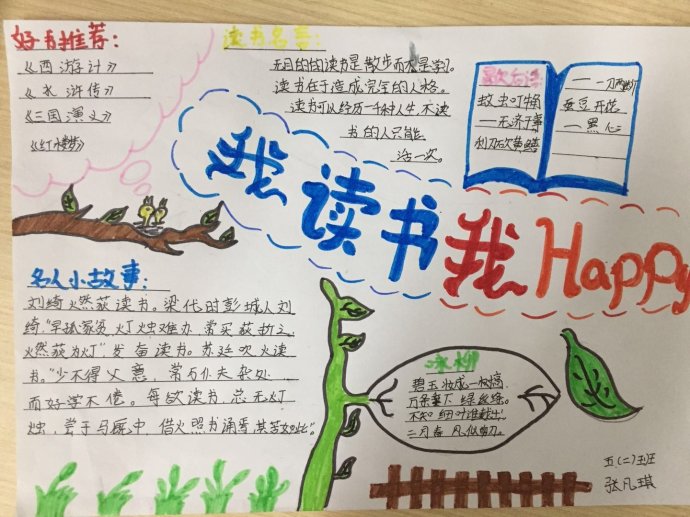 好书推荐：
《西游计》
《水浒传》
《三国演义》
《红楼梦》
读书名言：
无目的的读书是散步而不是学习。
读书在于造成完全的人格。
读书可以经历一千种人生，不读
书的人只能
活一次。
蚊虫叮牛角
——无济于事
利刀砍黄鳝
——一刀两断
蚕豆开花
——黑心
我读书我Happy
名人小故事：
刘绮燃荻读书。梁代时彭城人刘
绮，"早孤家贫，灯烛难办，常买荻折之，
燃荻为灯"，发奋读书。苏廷吹火读
书。"少不得父意，常与仆夫杂处，
而好学不倦。每欲读书，总无灯
烛，尝于马厩中，借火照书诵焉，其苦如此"。
咏柳
碧玉妆成一树高，
万条垂下绿丝绦。
不知细叶谁裁出，
二月春风似剪刀。
五(二)班
张凡琪